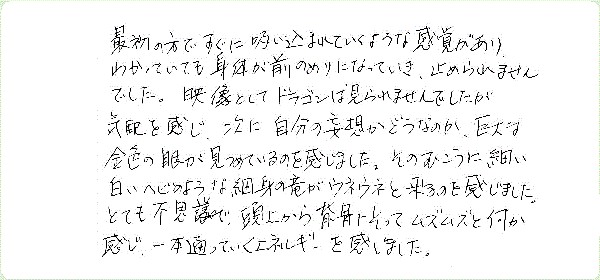 最初の方ですぐに吸い込まれていくような感覚があり
わかっていても身体が前のめりになっていき、止められません
でした。映像としてドラゴンは見られませんでしたが
気配を感じ、次に自分の妄想かどうなのか、巨大な
金色の眼が見つめているのを感じました。そのむこうに細い
白いヘビのような細身の竜がウネウネと来るのを感じました。
とても不思議で、頭上から背骨にそってムズムズと何か
感じ、一本通っていくエネルギーを感じました。